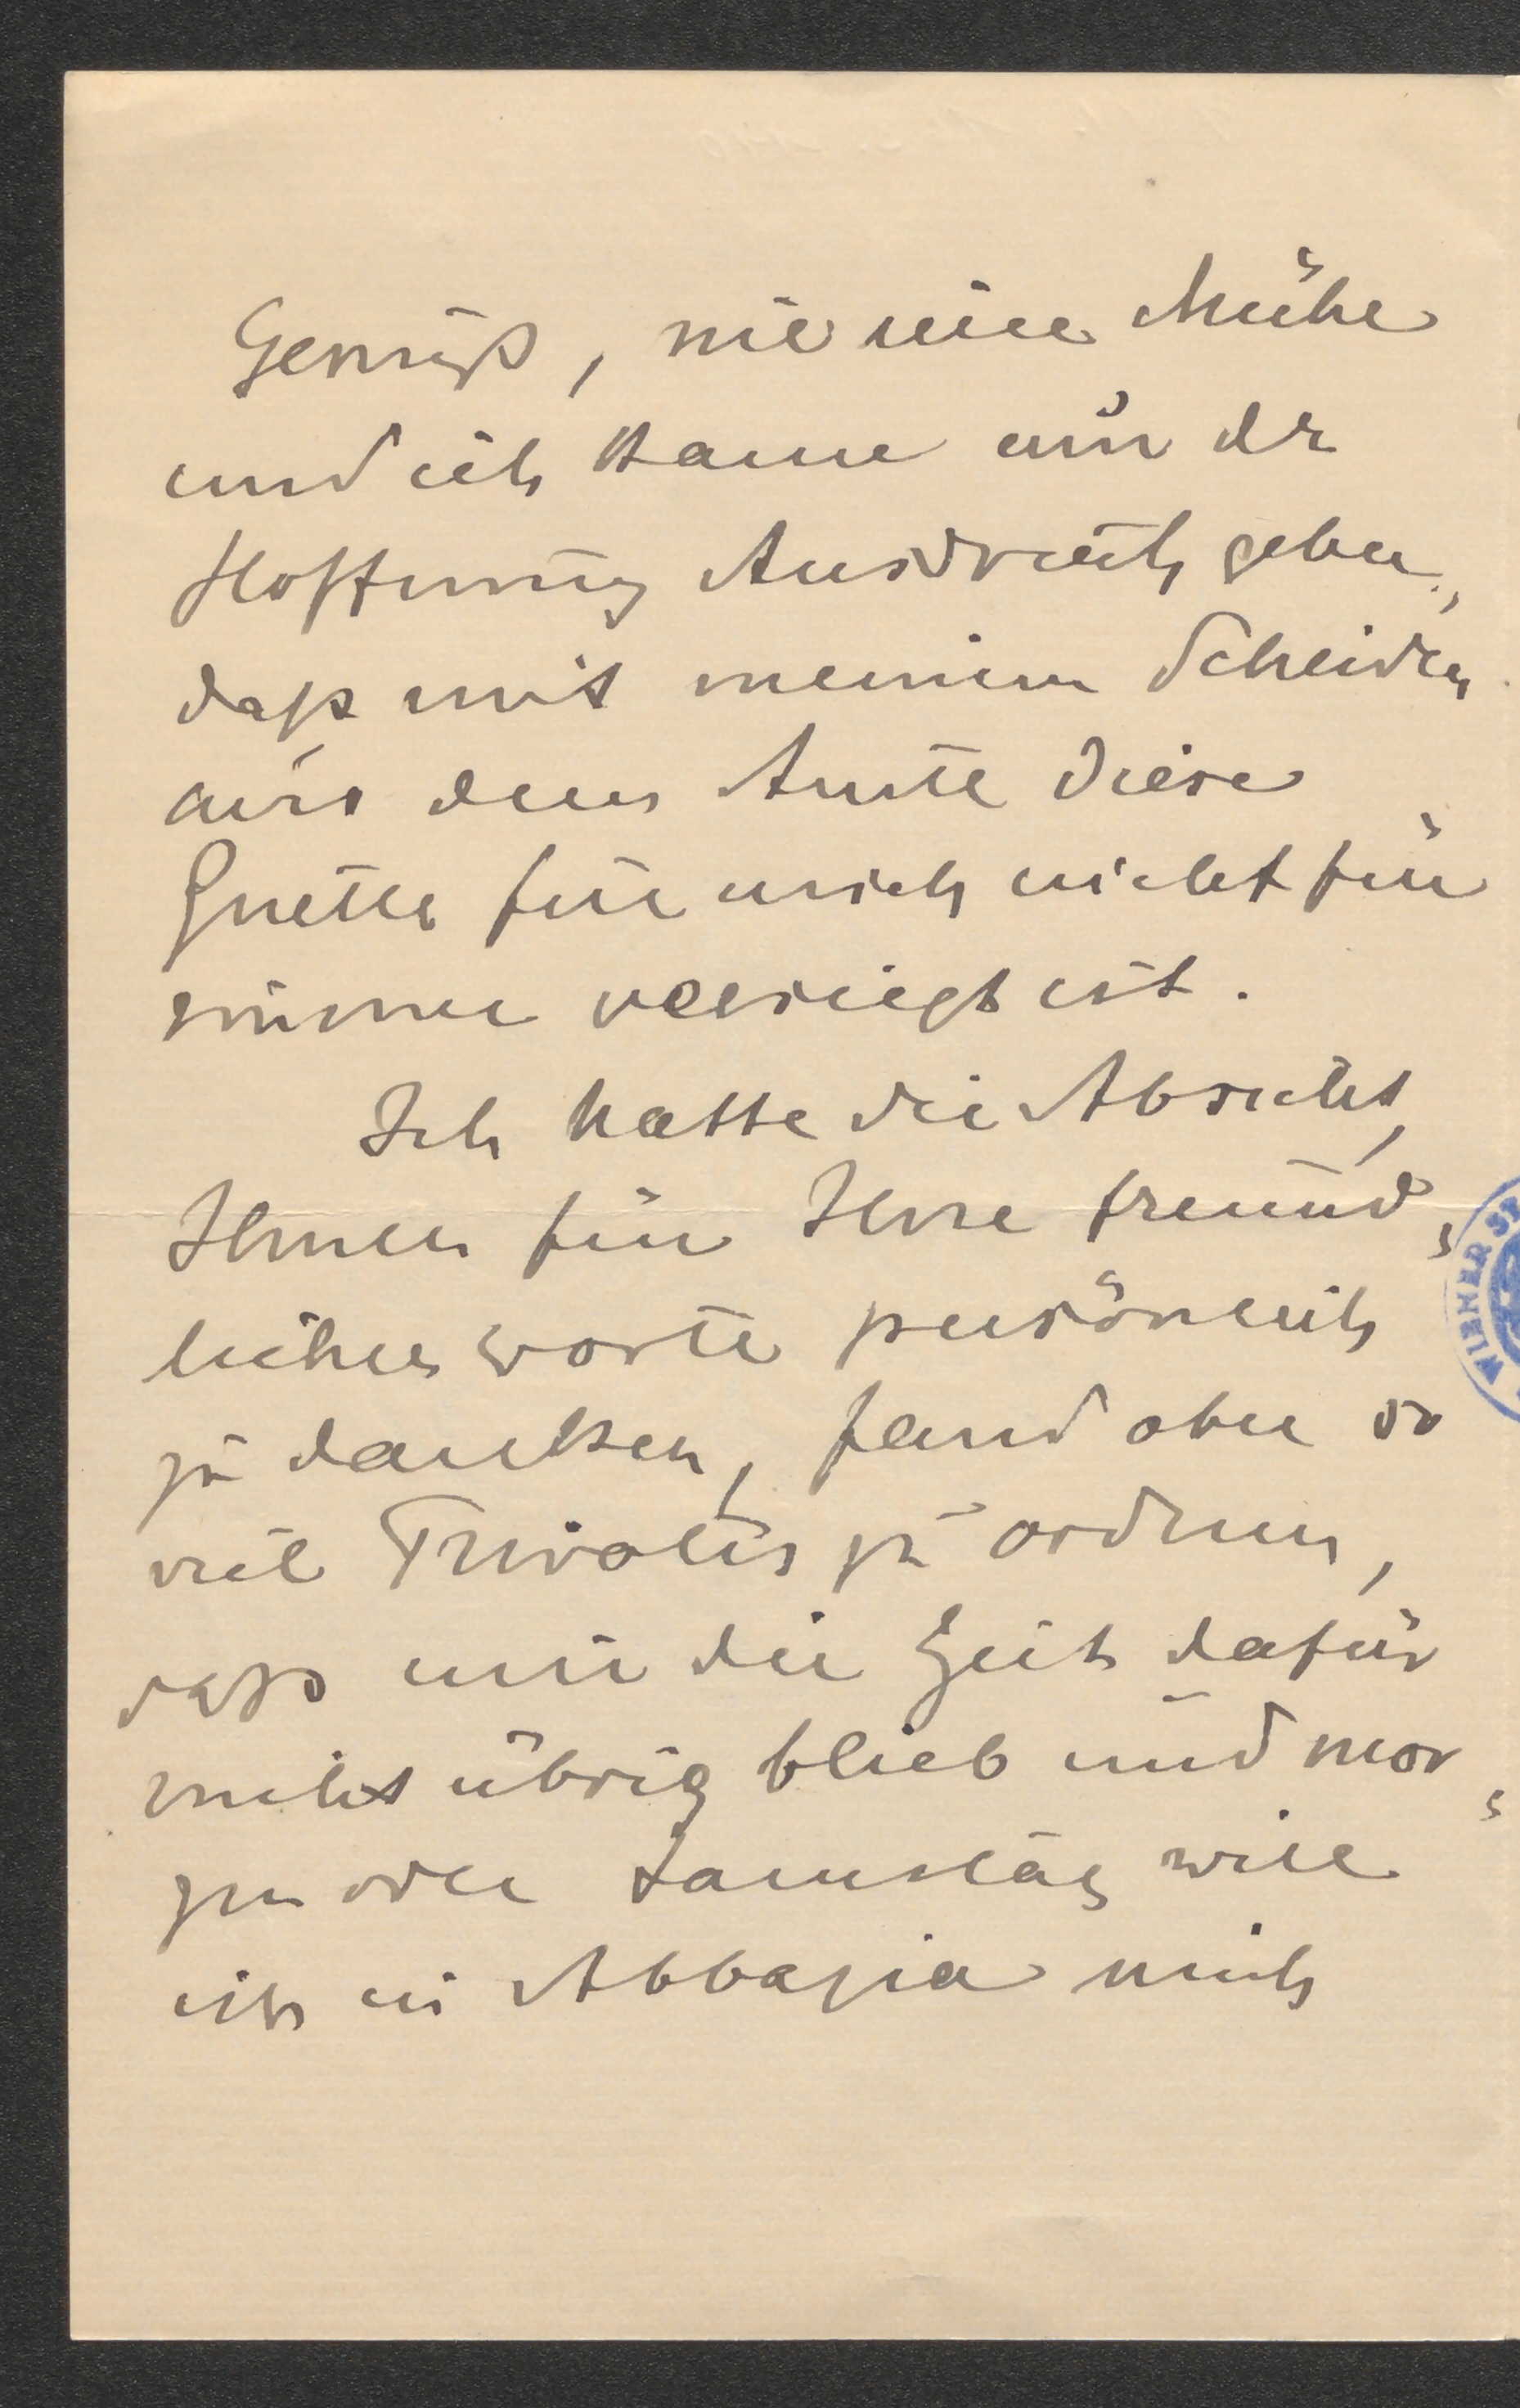 Genuß, nie eine Mühe
und ich kann nur der
Hoffnung Ausdruck geben,
daß mit meinem Scheiden
aus dem Amte diese
Quelle für mich nicht für
immer versiegt ist.
Ich hatte die Absicht,
Ihnen für Ihre freund-
lichen Worte persönlich
zu danken, fand aber so
viel Privates zu ordnen,
daß mir die Zeit dafür
nicht übrig blieb und mor-
gen oder Samstag will
ich in Abbazia mich
WIENER ST